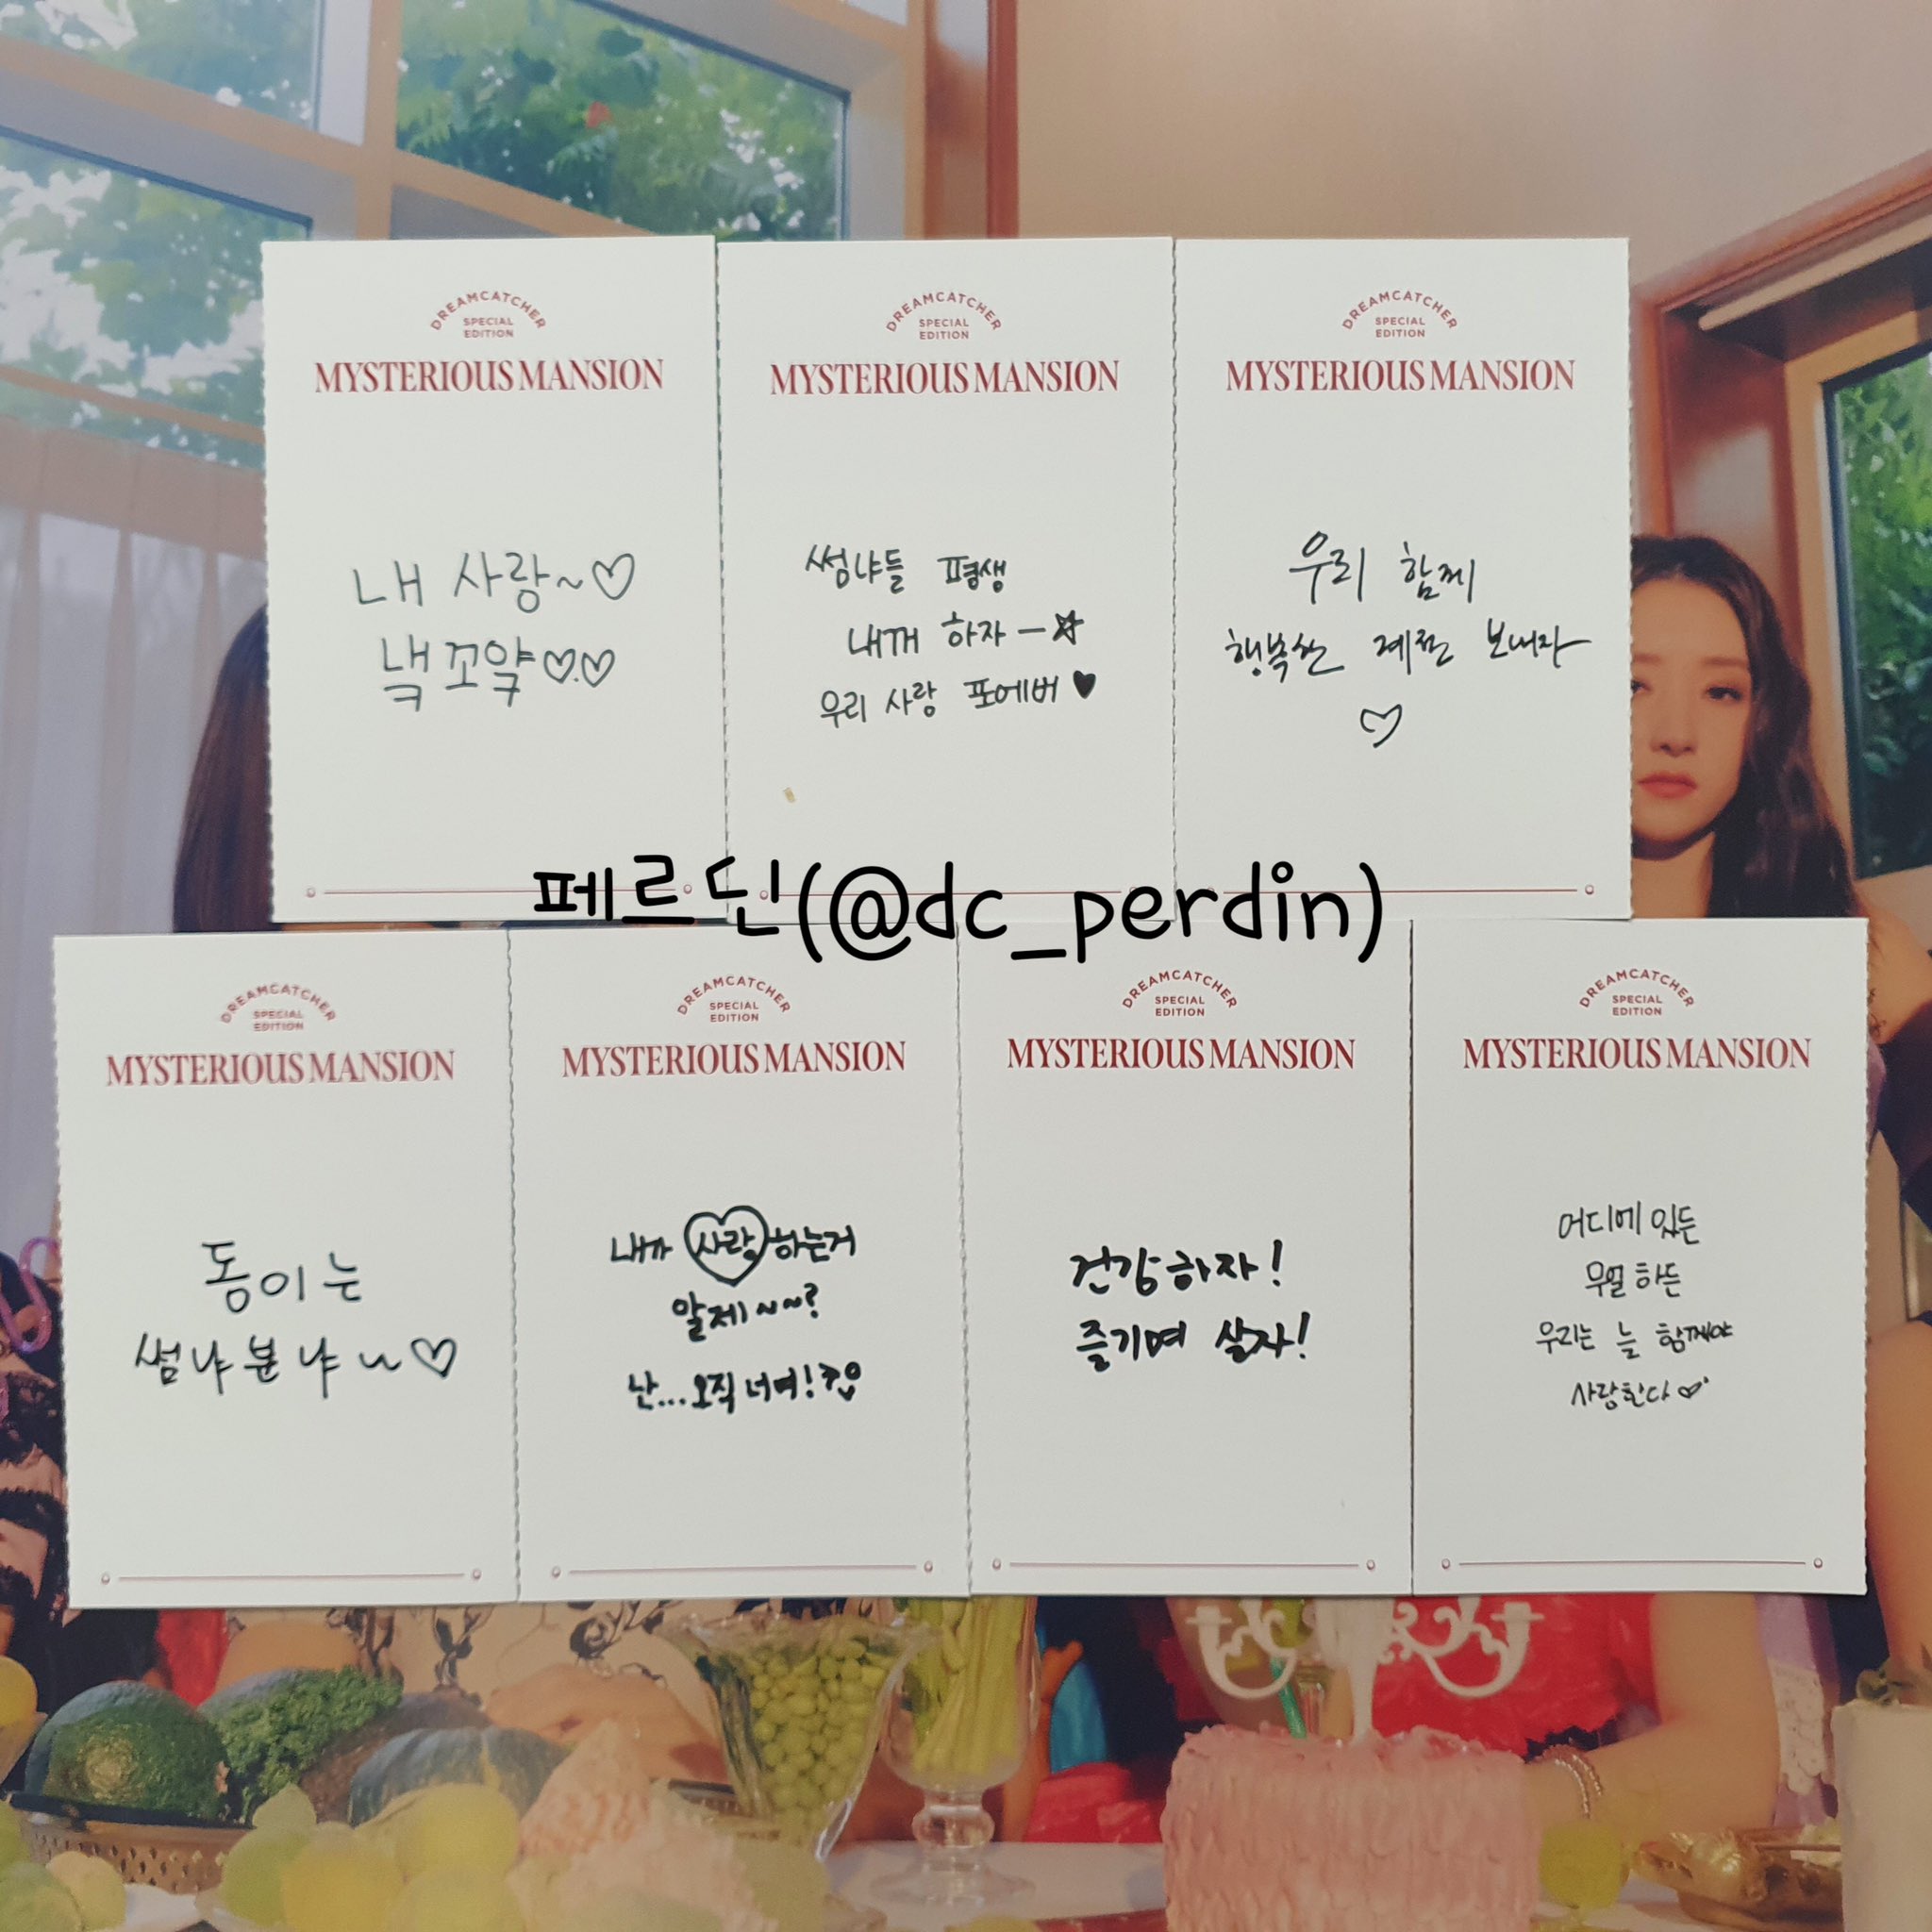 DREAMCATCHER
SPECIAL
EDITION
MYSTERIOUS MANSION
내 사랑~♡
낵 꼬약♡♡
DREAMCATCHER
SPECIAL
EDITION
MYSTERIOUS MANSION
썸냐들 평생
내꺼 하자-☆
우리 사랑 포에버♥
DREAMCATCHER
SPECIAL
EDITION
MYSTERIOUS MANSION
우리 함께
행복한 계절 보내자
♡
페르딘(@dc_perdin)
DREAMCATCHER
SPECIAL
EDITION
MYSTERIOUS MANSION
동이는
썸냐뿐냐~♡
DREAMCATCHER
SPECIAL
EDITION
MYSTERIOUS MANSION
내가 사랑하는거
알제~~?
난...오직 너여!
DREAMCATCHER
SPECIAL
EDITION
MYSTERIOUS MANSION
건강하자!
즐기며 살자!
DREAMCATCHER
SPECIAL
EDITION
MYSTERIOUS MANSION
어디에 있든
무얼 하든
우리는 늘 함께야
사랑한다♡